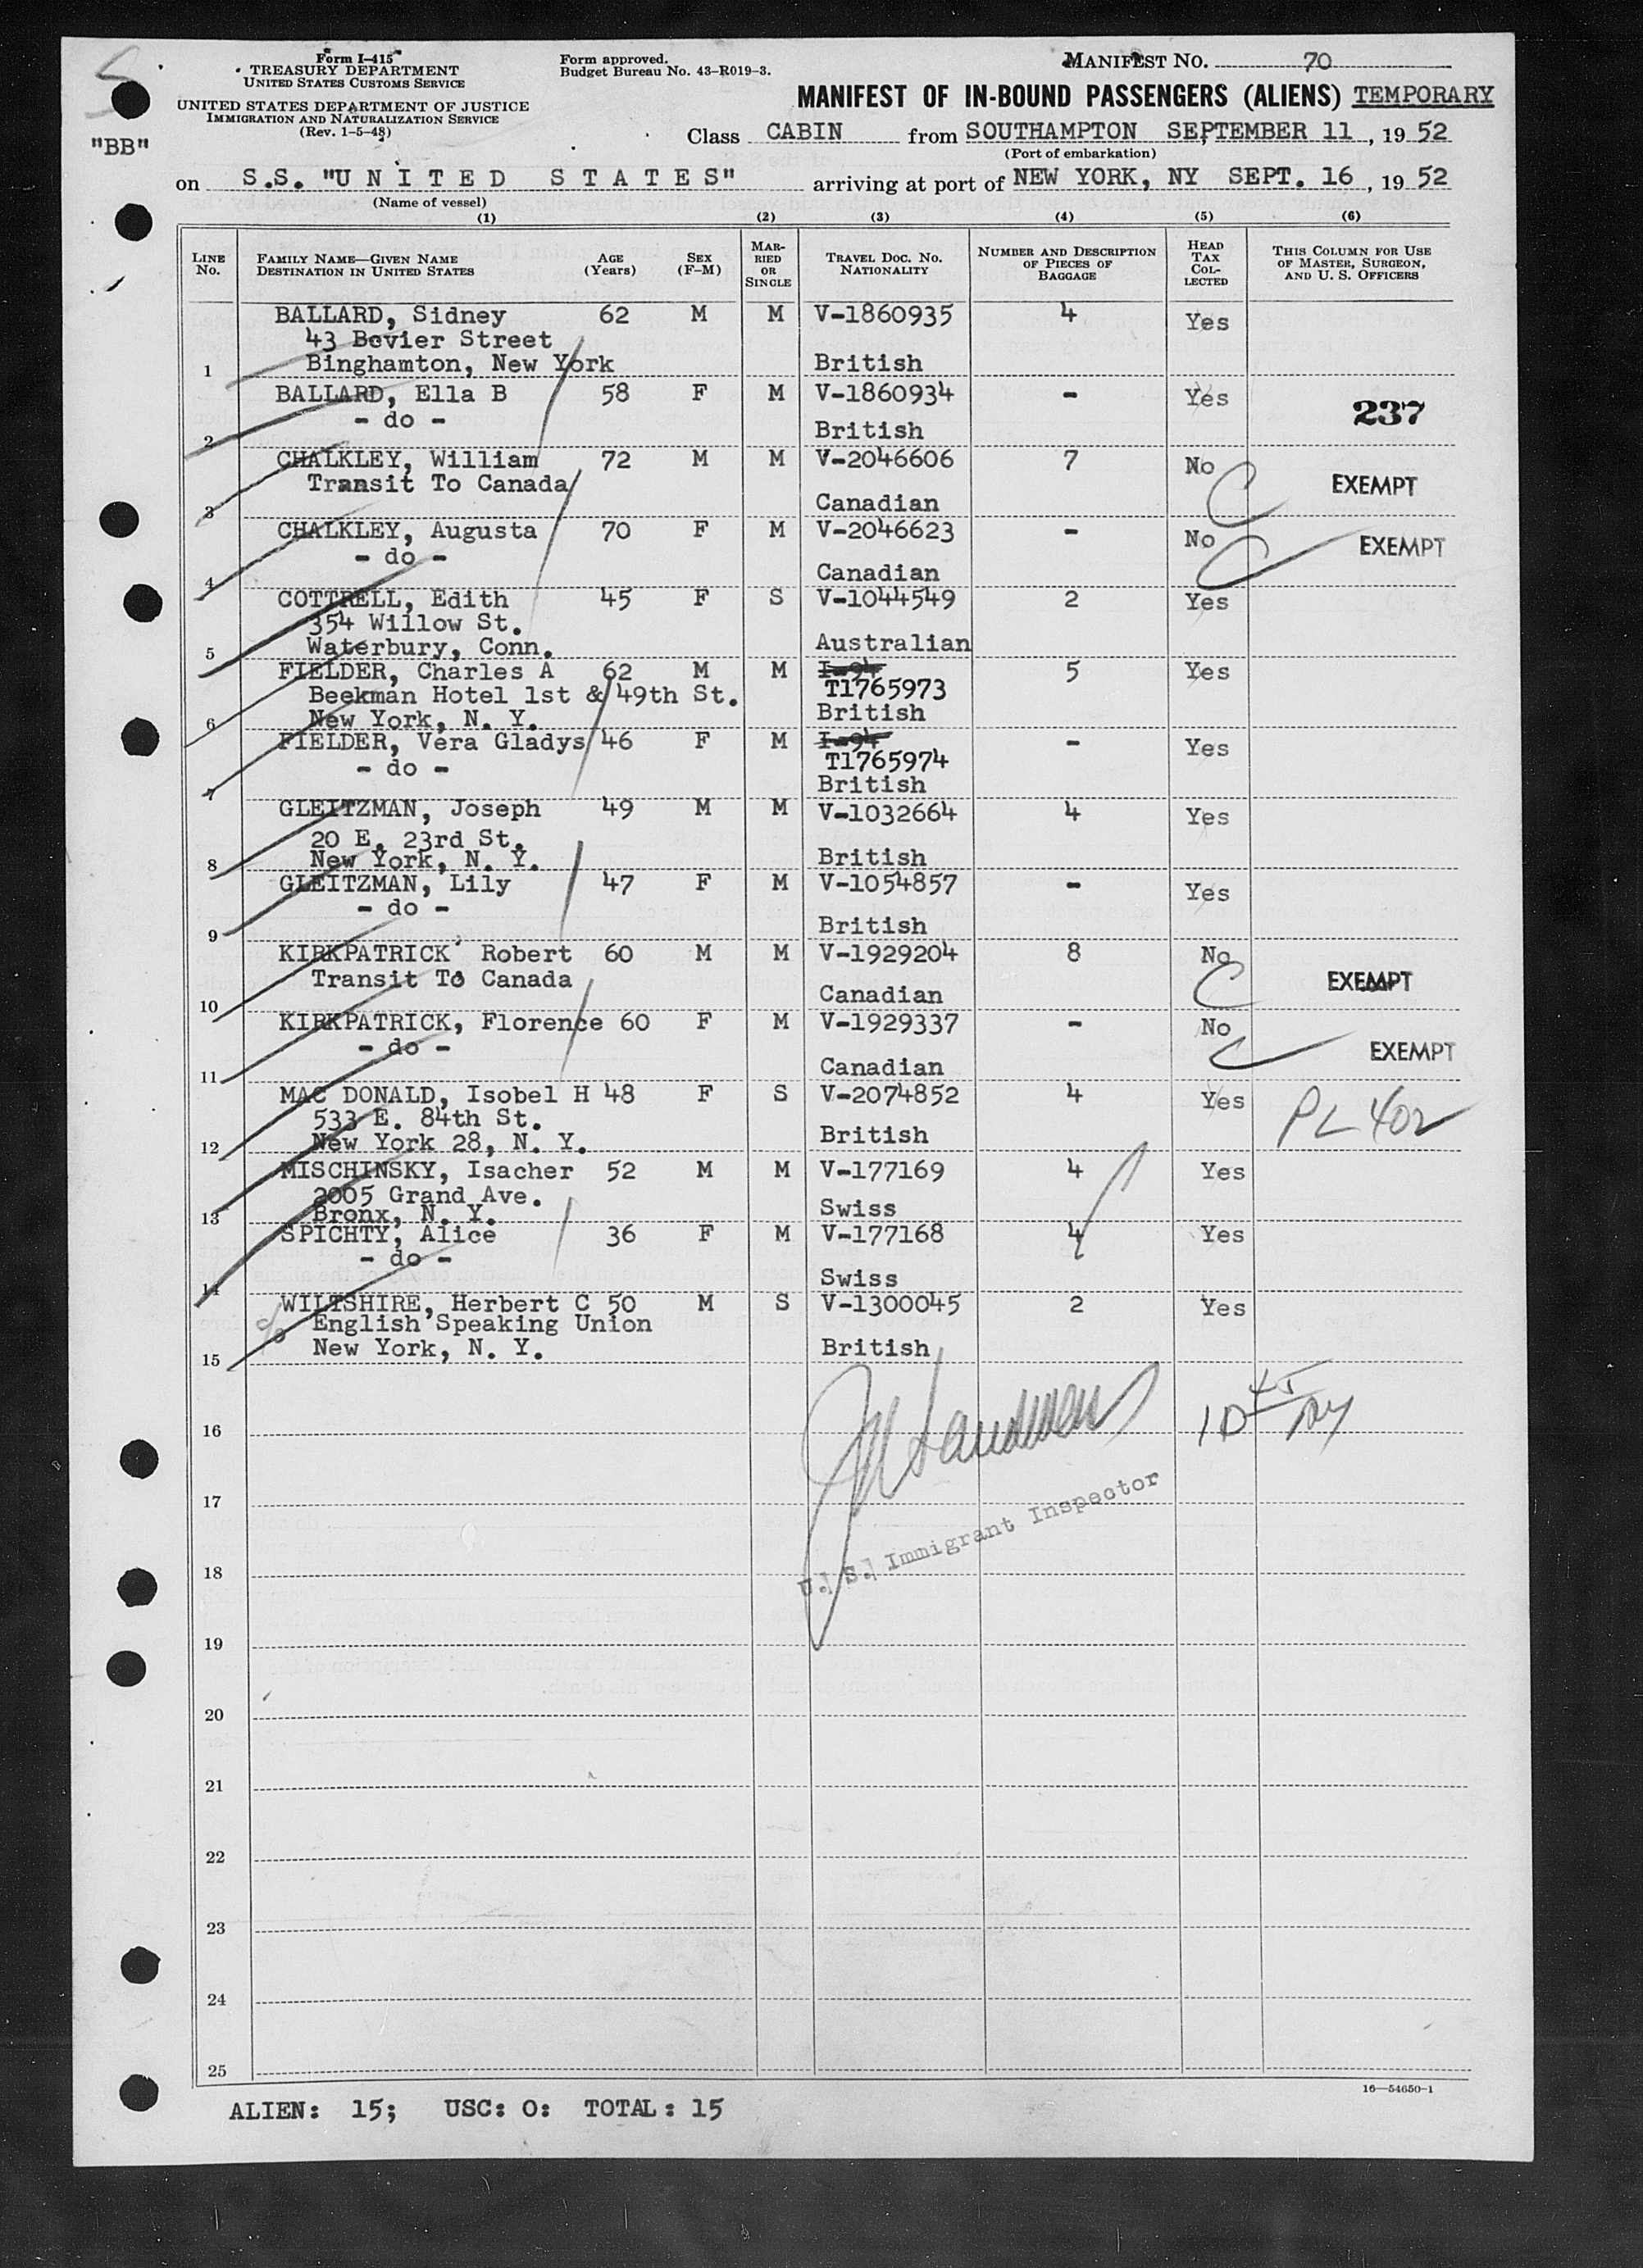 Form I-415
TREASURY DEPARTMENT
UNITED STATES CUSTOMS SERVICE
UNITED STATES DEPARTMENT OF JUSTICE
IMMIGRATION AND NATURALIZATION SERVICE
(Rev. 1-5-48)
"BB"
Form approved.
Budget Bureau No. 43-R019-3.
MANIFEST NO. 70
MANIFEST OF IN-BOUND PASSENGERS (ALIENS) TEMPORARY
Class CABIN from SOUTHAMPTON SEPTEMBER 11, 1952
(Port of embarkation)
on S.S. "UNITED STATES" arriving at port of NEW YORK, NY SEPT. 16, 1952
(Name of vessel)
(1) (2) (3) (4) (5) (6)
LINE No. FAMILY NAME—GIVEN NAME DESTINATION IN UNITED STATES AGE (Years) SEX (F-M) MARRIED OR SINGLE TRAVEL DOC. NO. NATIONALITY NUMBER AND DESCRIPTION OF PIECES OF BAGGAGE HEAD TAX COLLECTED THIS COLUMN FOR USE OF MASTER, SURGEON, AND U. S. OFFICERS
BALLARD, Sidney 62 M M V-1860935 4 Yes
43 Bevier Street
1 Binghamton, New York British
BALLARD, Ella B 58 F M V-1860934 - Yes 237
- do -
2 British
CHALKLEY, William 72 M M V-2046606 7 No C EXEMPT
Transit To Canada
3 Canadian
CHALKLEY, Augusta 70 F M V-2046623 - No C EXEMPT
- do -
4 Canadian
COTTRELL, Edith 45 F S V-1044549 2 Yes
354 Willow St.
5 Waterbury, Conn. Australian
FIELDER, Charles A 62 M M I-94 5 Yes
Beekman Hotel 1st & 49th St. T1765973
6 New York, N. Y. British
FIELDER, Vera Gladys 46 F M I-94 - Yes
- do - T1765974
7 British
GLEITZMAN, Joseph 49 M M V-1032664 4 Yes
20 E. 23rd St.
8 New York, N. Y. British
GLEITZMAN, Lily 47 F M V-1054857 - Yes
- do -
9 British
KIRKPATRICK Robert 60 M M V-1929204 8 No C EXEMPT
Transit To Canada
10 Canadian
KIRKPATRICK, Florence 60 F M V-1929337 - No C EXEMPT
- do -
11 Canadian
MAC DONALD, Isobel H 48 F S V-2074852 4 Yes PL 402
533 E. 84th St.
12 New York 28, N. Y. British
MISCHINSKY, Isacher 52 M M V-177169 4 Yes
2005 Grand Ave.
13 Bronx, N. Y. Swiss
SPICHTY, Alice 36 F M V-177168 4 Yes
- do -
14 Swiss
WILTSHIRE, Herbert C 50 M S V-1300045 2 Yes
c/o English Speaking Union
15 New York, N. Y. British
16
17
U. S. Immigrant Inspector
18
19
20
21
22
23
24
25
16—54650-1
ALIEN: 15; USC: 0: TOTAL: 15